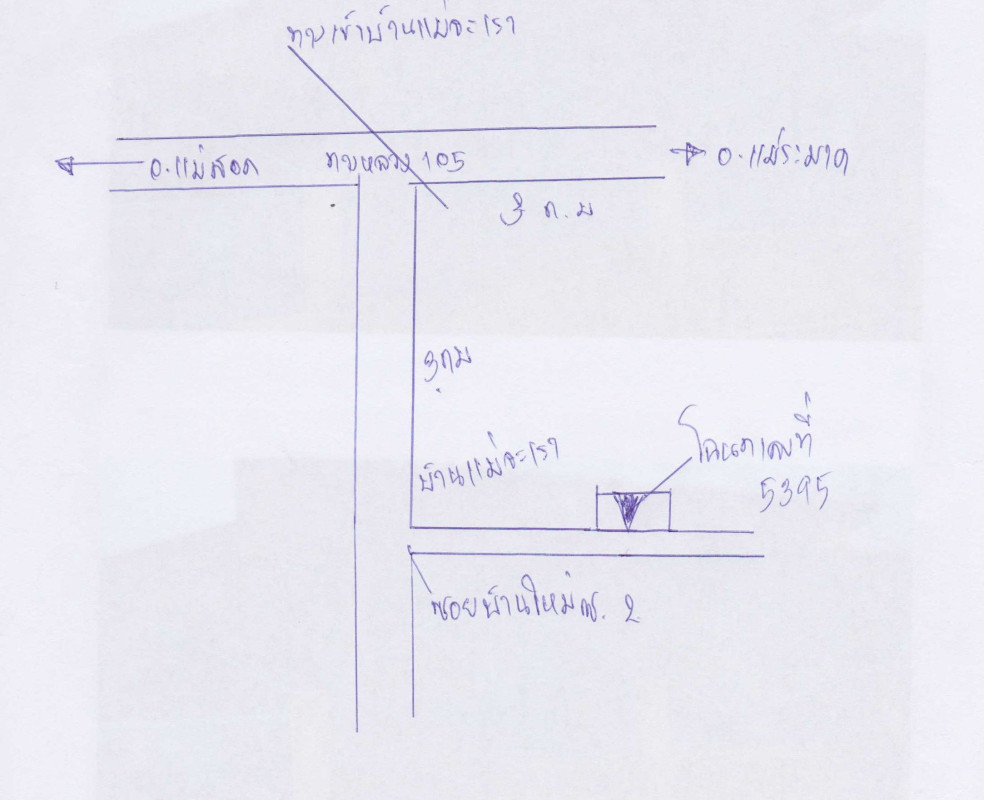 ทางเข้าบ้านแม่จะเรา
อ.แม่สอด
ทางหลวง 105
อ.แม่ระมาด
3 ก.ม
3 กม
บ้านแม่จะเรา
โฉนดเลขที่
5395
ซอยบ้านใหม่ซ. 2